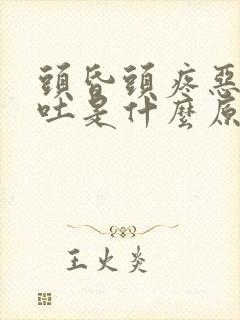 頭昏頭疼惡
吐是什麼原
王火炎